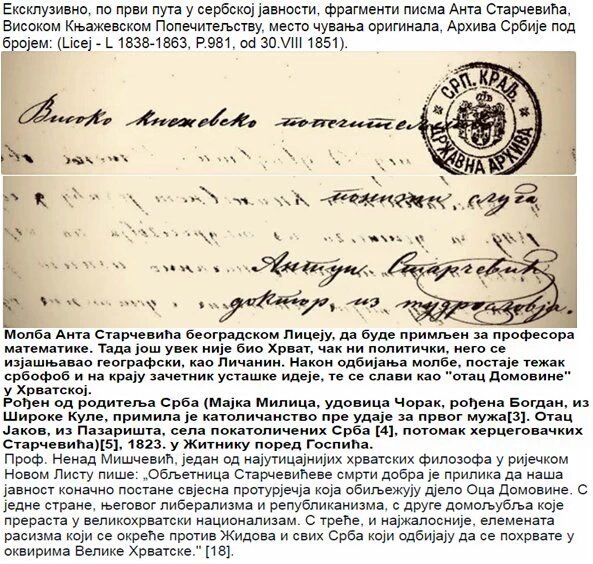 Ексклузивно, по први пута у сербској јавности, фрагменти писма Анта Старчевића,
Високом Књажевском Попечитељству, место чувања оригинала, Архива Србије под
бројем: (Licej - L 1838-1863, P.981, od 30.VIII 1851).
СРП. КРАЉ.
ДРЖАВНА АРХИВА
Високо књежевско попечитељ
понизни слуга
Антун Старчевић
доктор из мудрословја.
Молба Анта Старчевића београдском Лицеју, да буде примљен за професора
математике. Тада још увек није био Хрват, чак ни политички, него се
изјашњавао географски, као Личанин. Након одбијања молбе, постаје тежак
србофоб и на крају зачетник усташке идеје, те се слави као "отац Домовине"
у Хрватској.
Рођен од родитеља Срба (Мајка Милица, удовица Чорак, рођена Богдан, из
Широке Куле, примила је католичанство пре удаје за првог мужа[3]. Отац
Јаков, из Пазаришта, села покатоличених Срба [4], потомак херцеговачких
Старчевића)[5], 1823. у Житнику поред Госпића.
Проф. Ненад Мишчевић, један од најутицајнијих хрватских филозофа у ријечком
Новом Листу пише: „Обљетница Старчевићеве смрти добра је прилика да наша
јавност коначно постане свјесна протурјечја која обиљежују дјело Оца Домовине. С
једне стране, његовог либерализма и републиканизма, с друге домољубља које
прераста у великохрватски национализам. С треће, и најжалосније, елемената
расизма који се окреће против Жидова и свих Срба који одбијају да се похрвате у
оквирима Велике Хрватске." [18].